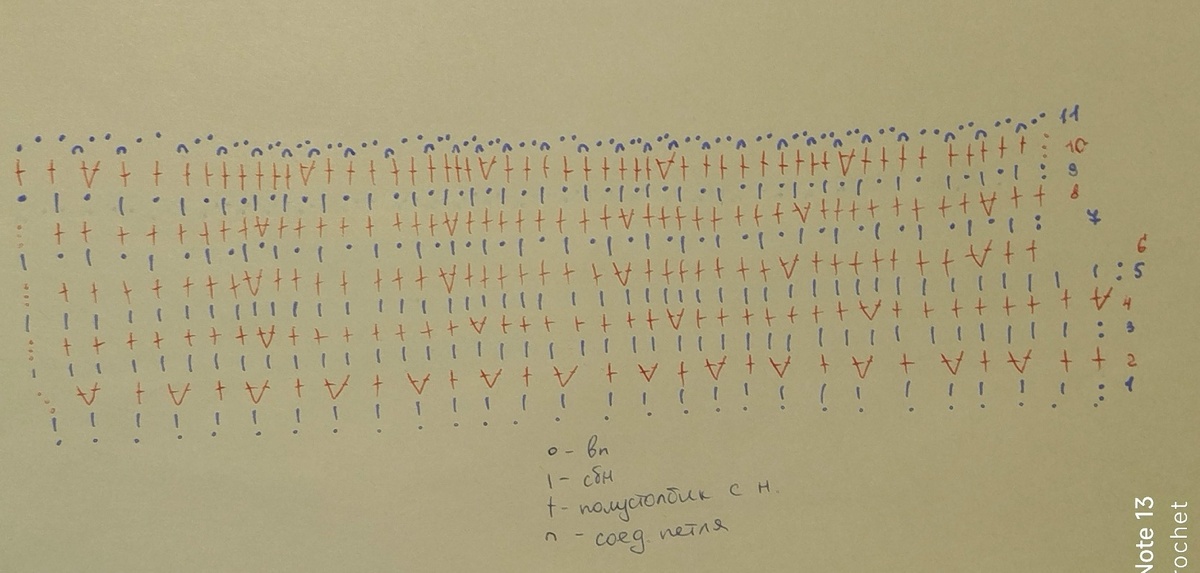 11
10
9
8
7
6
5
4
3
2
1
о - вп
| - сбн
† - полустолбик с н.
∩ - соед. петля
Note 13
rochet